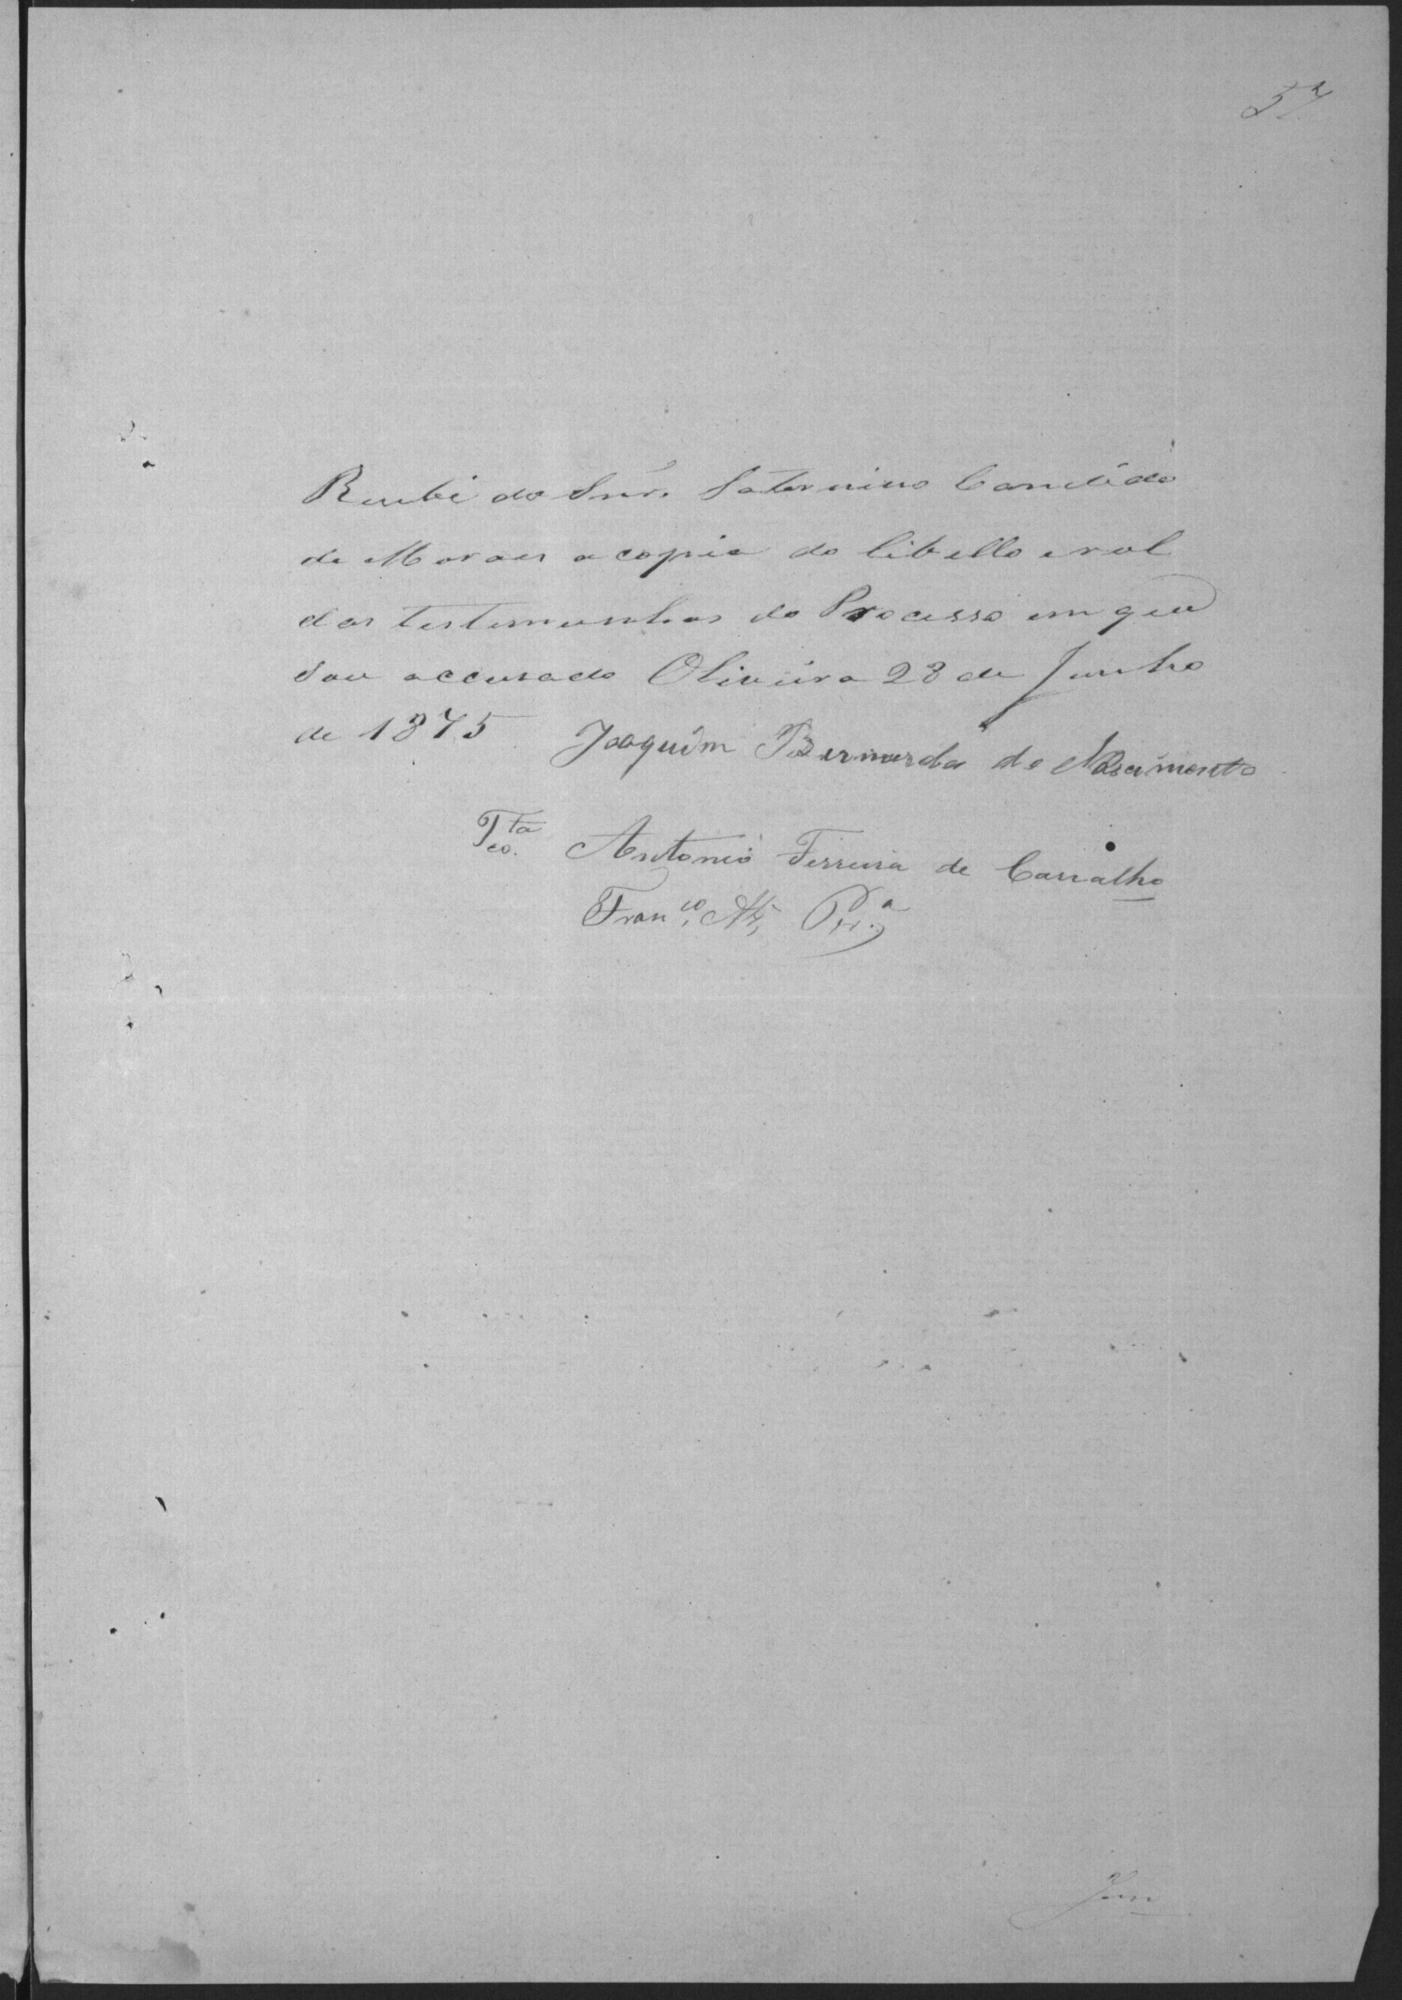 57
Recebi do Snr. Saternino Candido
de Moraes a copia do libello e rol
das testemunhas do Processo em que
sou accusado Oliveira 28 de Junho
de 1875 Joaquim Bernardo do Nascimento
Tta Antonio Ferreira de Carvalho
Franco. Alz Pra.